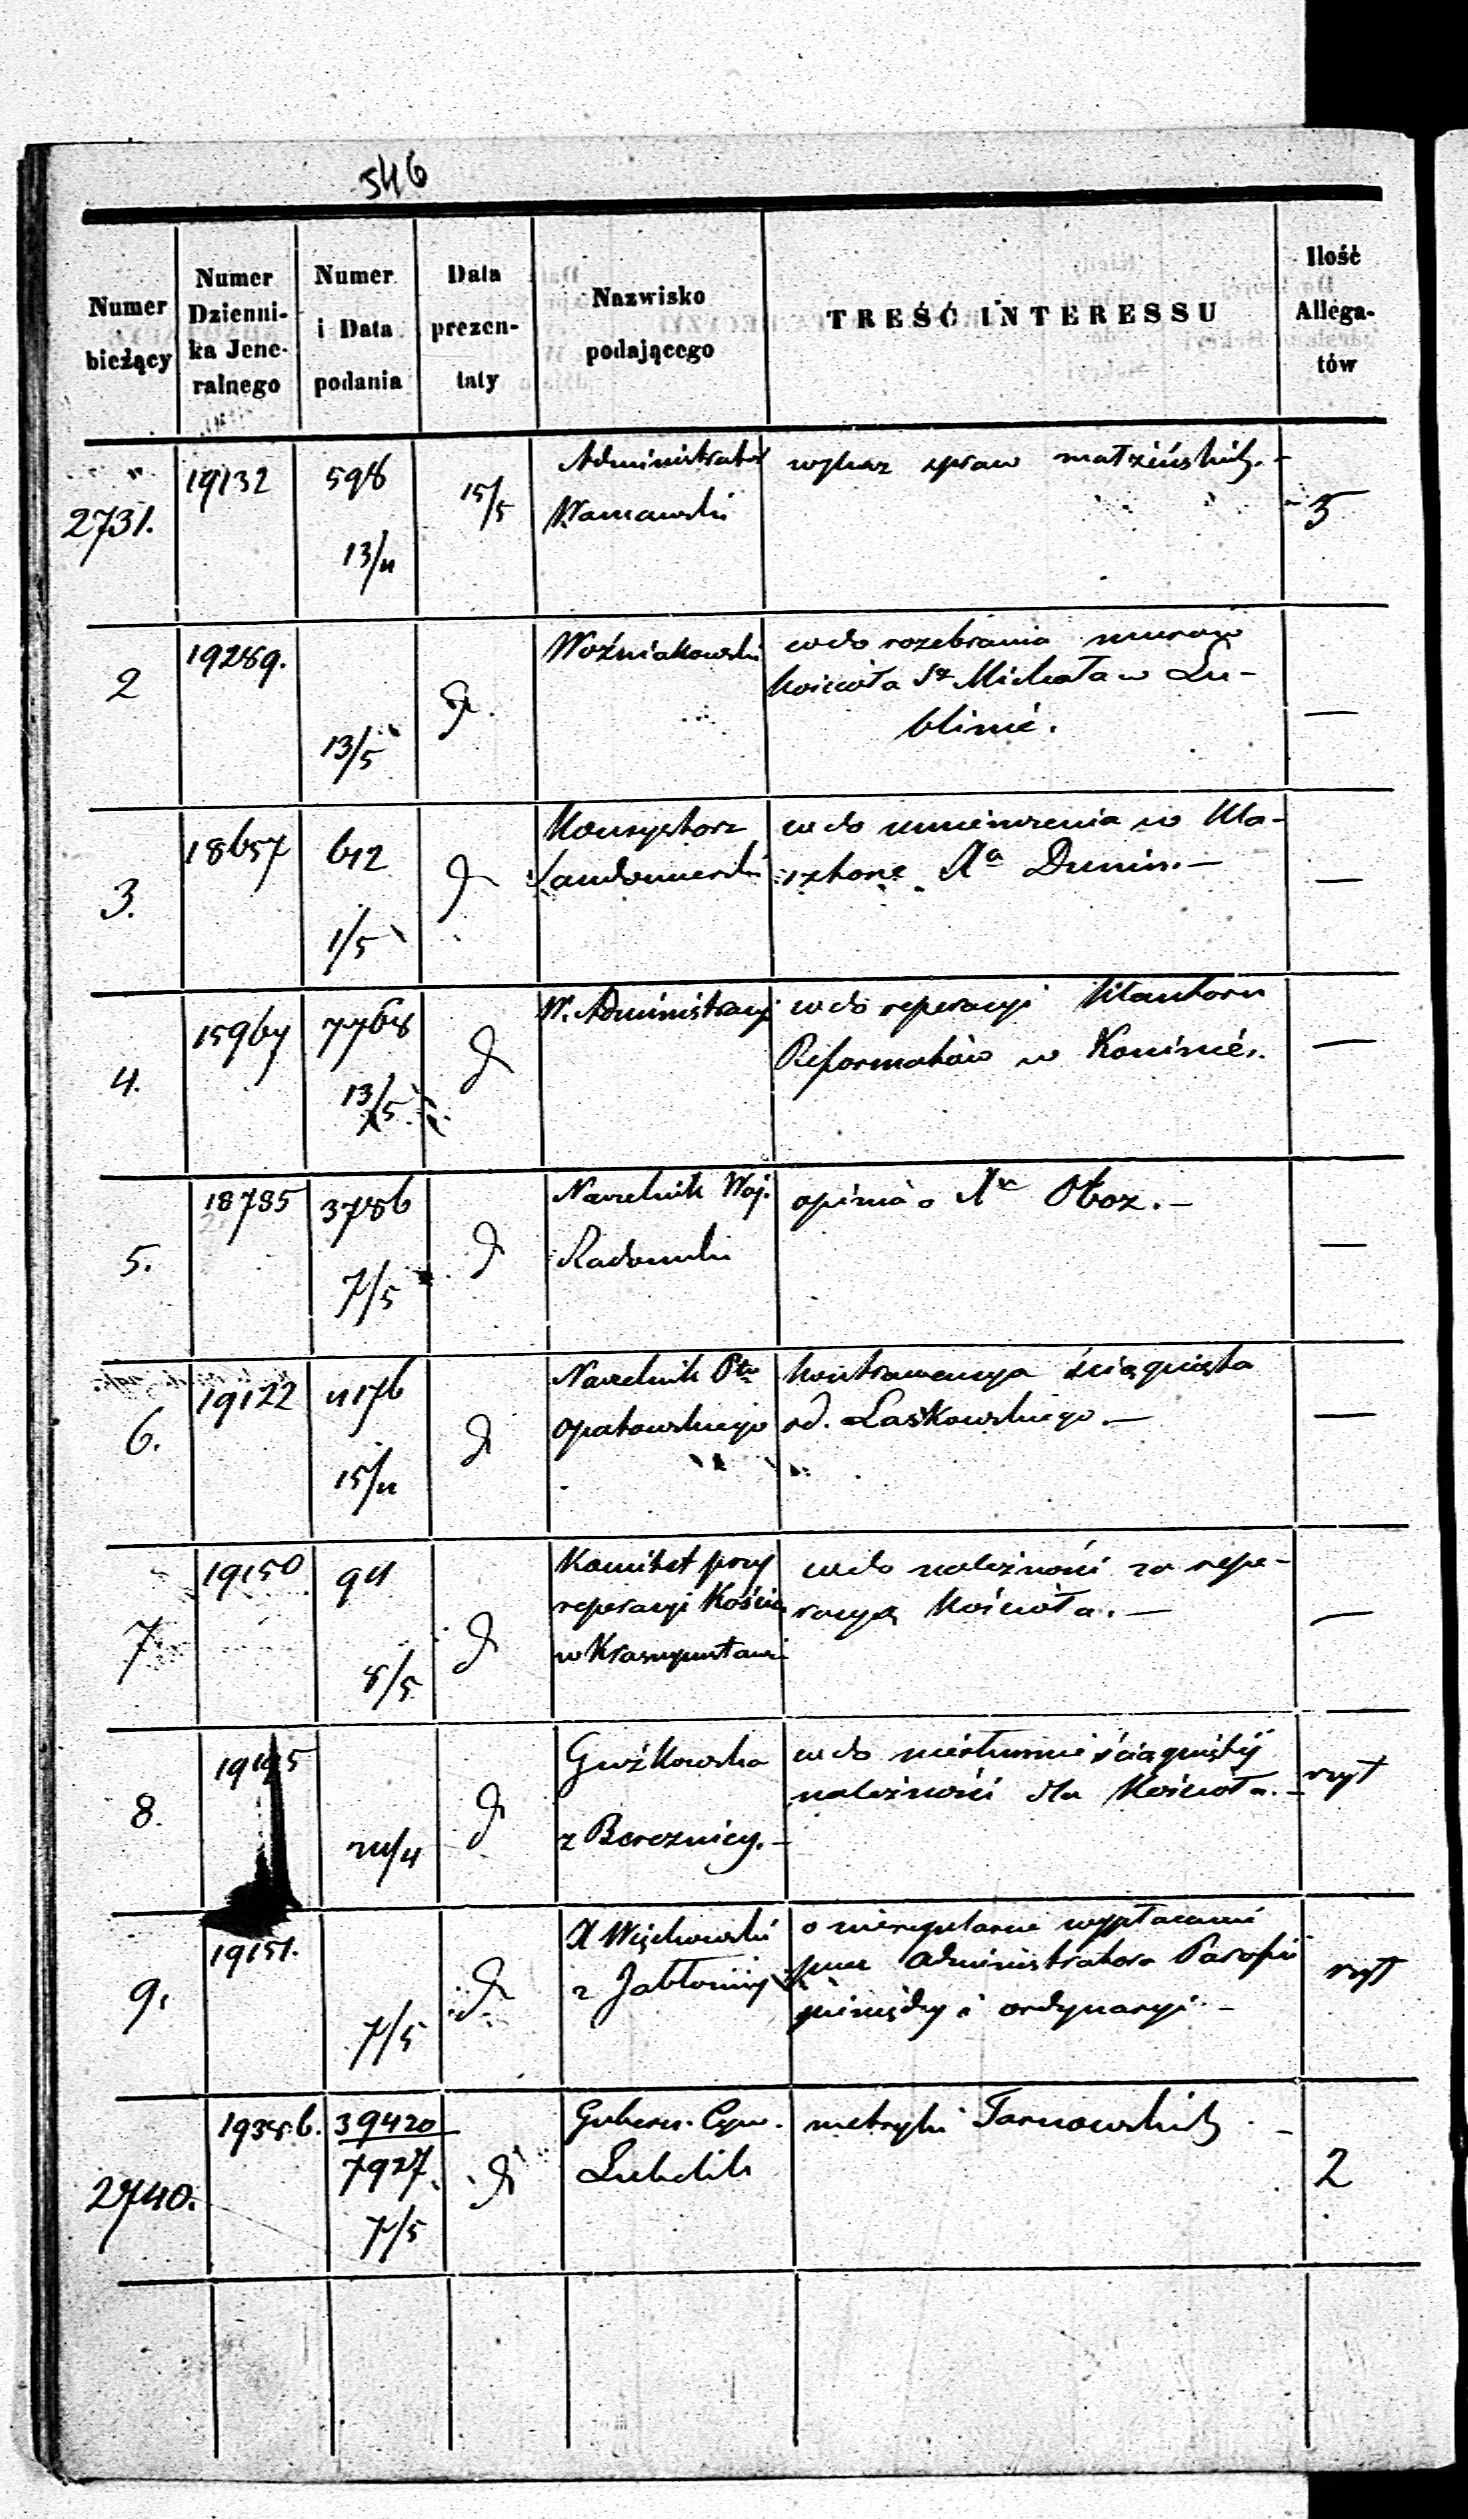 546
Numer bieżący | Numer Dzienni- ka Jene- ralnego | Numer i Data podania | Data prezen- taty | Nazwisko podającego | TREŚĆ INTERESSU | Ilość Allega- tów
2731. | 19132 | 598 13/4 | 15/5 | Administrator | wykaz spraw małżeńskich. - | 3
2 | 19289. | 13/5 | d. | Woźniakowski | wdo rozebrania murow
kościoła Sgo Michała w Lu-
blinie. | —
3. | 18657 | 612 1/5 | d | Konsystorz
Sandomierski | wdo umieszczenia w Kla-
sztorze Xa Dunin. — | —
4. | 15967 | 7768 13/5 | d | W. Administracyi | wdo reperacyi Klasztoru
Reformatów w Koninie. | —
5. | 18785 | 3786 7/5 | d | Naczelnik Woj.
Radomski | opinia o Xu Oboz. — | —
6. | 19122 | 4176 15/4 | d | Naczelnik Ptu
Opatowskiego | kontrawencya ściągnięta
od Laskowskiego. — | —
7 | 19150 | 94 8/5 | d | Komitet przy
reperacyi Kościoła
w Krasnymstawie | wdo należności za repe-
racyą Kościoła. — | —
8. | 24/4 | d | Guźkowska
z Bereznicy. — | wdo niesłusznie ściągniętéj
należności dla Kościoła. — | szyt
9. | 19151. | 7/5 | d | X Więckowski
z Jabłonny | o nieregularne wypłacanie
przez Administratora Parafii
pieniędzy i ordynaryi. — | szyt
2740. | 19386. | 39420 7927. 7/5 | d | Gubern. Cyw.
Lubelski | metryki Tarnowskich - | 2